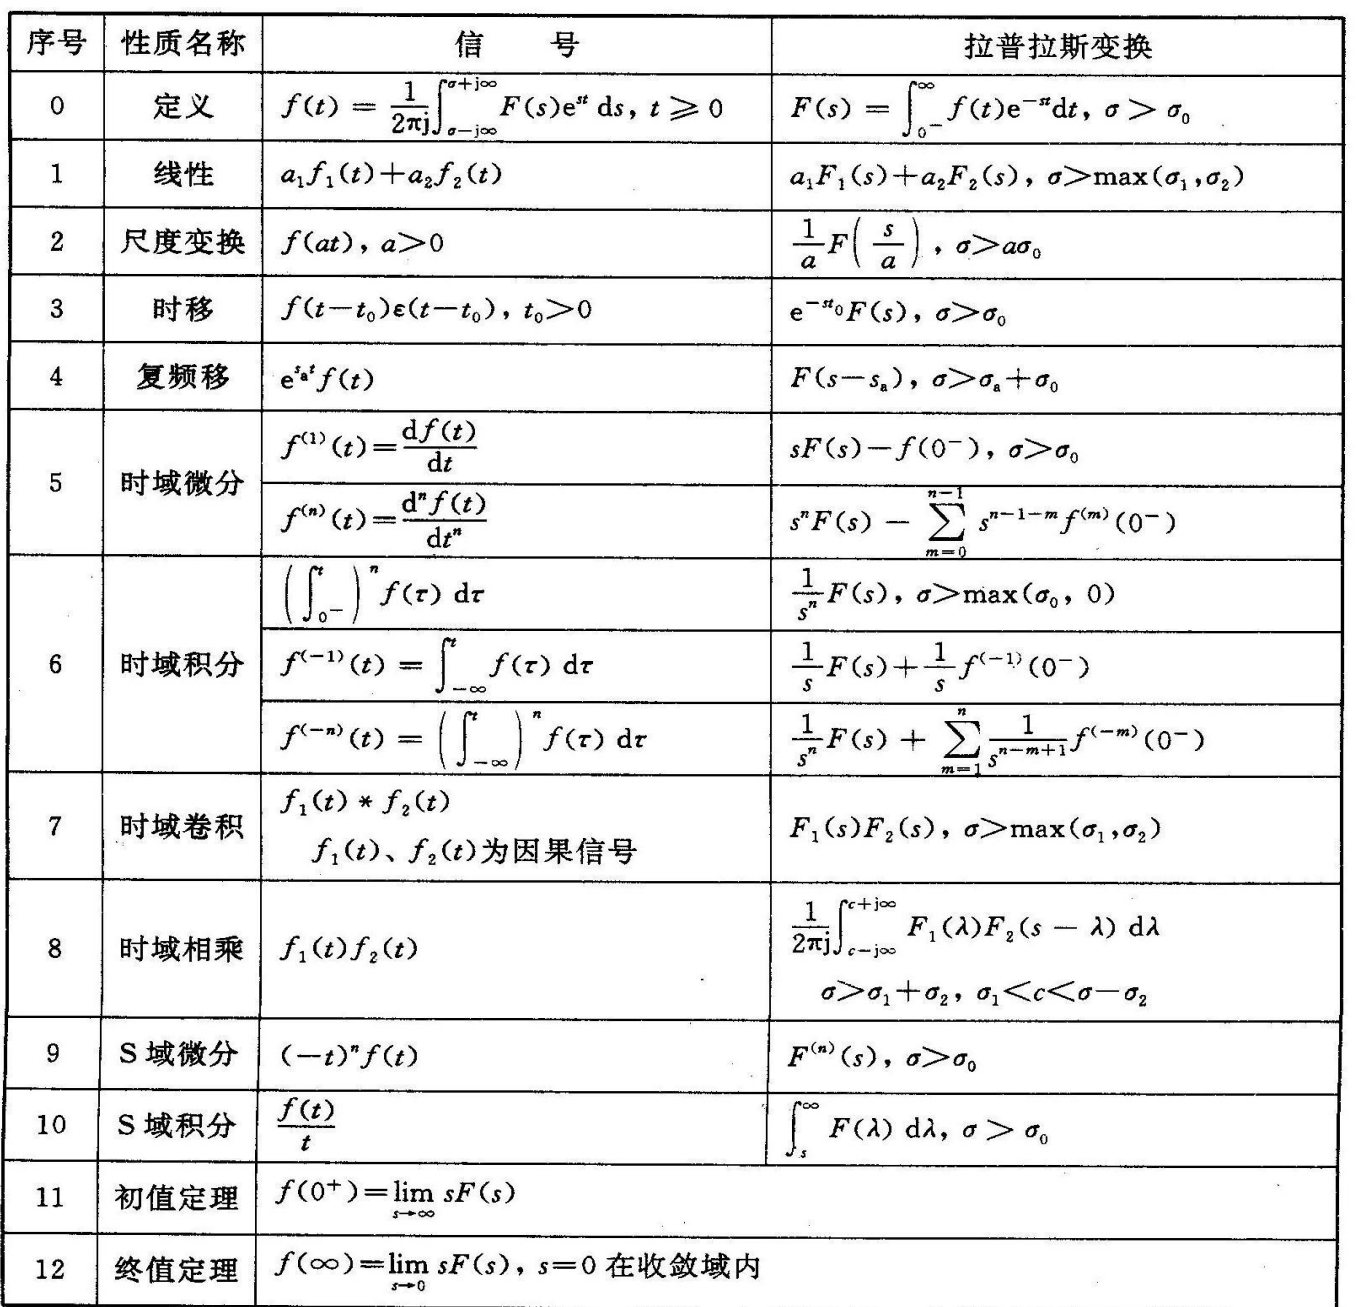 序号 性质名称 信 号 拉普拉斯变换
0 定义 f(t) = \frac{1}{2πj}\int_{σ-j∞}^{σ+j∞} F(s)e^{st} ds, t ⩾ 0 F(s) = \int_{0^-}^{∞} f(t)e^{-st}dt, σ > σ_0
1 线性 a_1f_1(t)+a_2f_2(t) a_1F_1(s)+a_2F_2(s), σ>max(σ_1,σ_2)
2 尺度变换 f(at), a>0 \frac{1}{a}F(\frac{s}{a}), σ>aσ_0
3 时移 f(t-t_0)ε(t-t_0), t_0>0 e^{-st_0}F(s), σ>σ_0
4 复频移 e^{s_a t}f(t) F(s-s_a), σ>σ_a+σ_0
5 时域微分 f^{(1)}(t)=\frac{df(t)}{dt} sF(s)-f(0^-), σ>σ_0
f^{(n)}(t)=\frac{d^n f(t)}{dt^n} s^nF(s) - \sum_{m=0}^{n-1} s^{n-1-m}f^{(m)}(0^-)
6 时域积分 (\int_{0^-}^{t})^n f(τ) dτ \frac{1}{s^n}F(s), σ>max(σ_0, 0)
f^{(-1)}(t) = \int_{-∞}^{t} f(τ) dτ \frac{1}{s}F(s)+\frac{1}{s}f^{(-1)}(0^-)
f^{(-n)}(t) = (\int_{-∞}^{t})^n f(τ) dτ \frac{1}{s^n}F(s) + \sum_{m=1}^{n}\frac{1}{s^{n-m+1}}f^{(-m)}(0^-)
7 时域卷积 f_1(t) * f_2(t)
f_1(t)、f_2(t)为因果信号 F_1(s)F_2(s), σ>max(σ_1,σ_2)
8 时域相乘 f_1(t)f_2(t) \frac{1}{2πj}\int_{c-j∞}^{c+j∞} F_1(λ)F_2(s - λ) dλ
σ>σ_1+σ_2, σ_1<c<σ-σ_2
9 S域微分 (-t)^nf(t) F^{(n)}(s), σ>σ_0
10 S域积分 \frac{f(t)}{t} \int_{s}^{∞} F(λ) dλ, σ > σ_0
11 初值定理 f(0^+)=\lim_{s→∞} sF(s)
12 终值定理 f(∞)=\lim_{s→0} sF(s), s=0在收敛域内